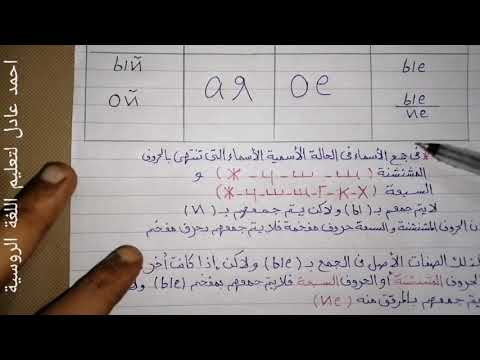 احمد عادل لتعليم اللغة الروسية
ый ая ое ые
ой ые
ие
* في جمع الأسماء في الحالة الأسمية الأسماء التي تنتهي بالحروف
المشنشنة (ж - ч - ш - щ) و
السبعة (ж-ч-ш-щ-г-к-х)
لا يتم جمعهم بـ (ы) ولاكن يتم جمعهم بـ (и)
الحروف المشنشنة و السبعة حروف مفخمة فلا يتم جمعهم بحرف مفخم
كذلك الصفات الأصل في الجمع بـ (ые) ولاكن إذا كانت أخر
الحروف المشنشنة أو الحروف السبعة فلا يتم جمعهم بمفخم (ые)
يتم جمعهم بالمرقق منه (ие)